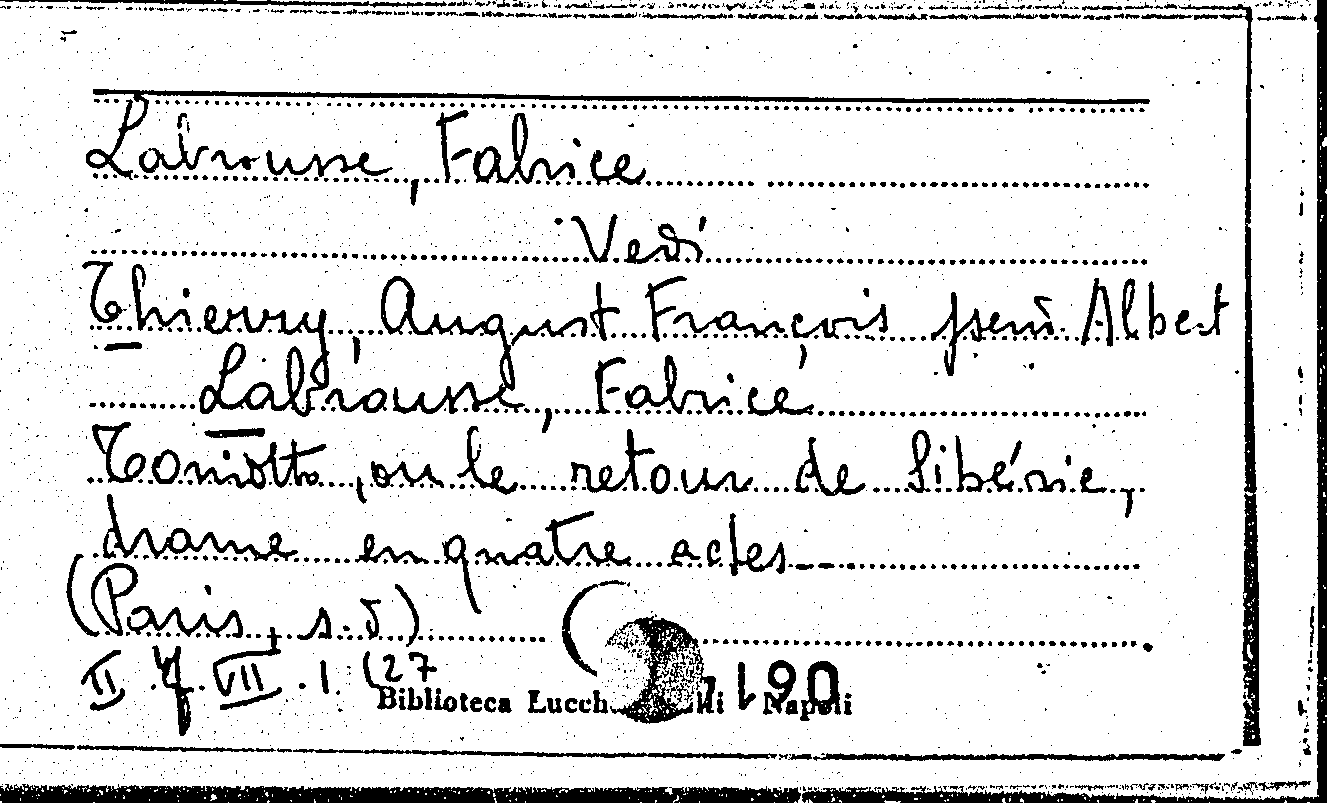 Labrousse, Fabrice
Vedi
Thierry, August François pseud. Albert
Labrousse, Fabrice
Toniotto, ou le retour de Sibérie,
drame en quatre actes---
(Paris, s.d)
II VII . 1. (27
Biblioteca Lucch Napoli